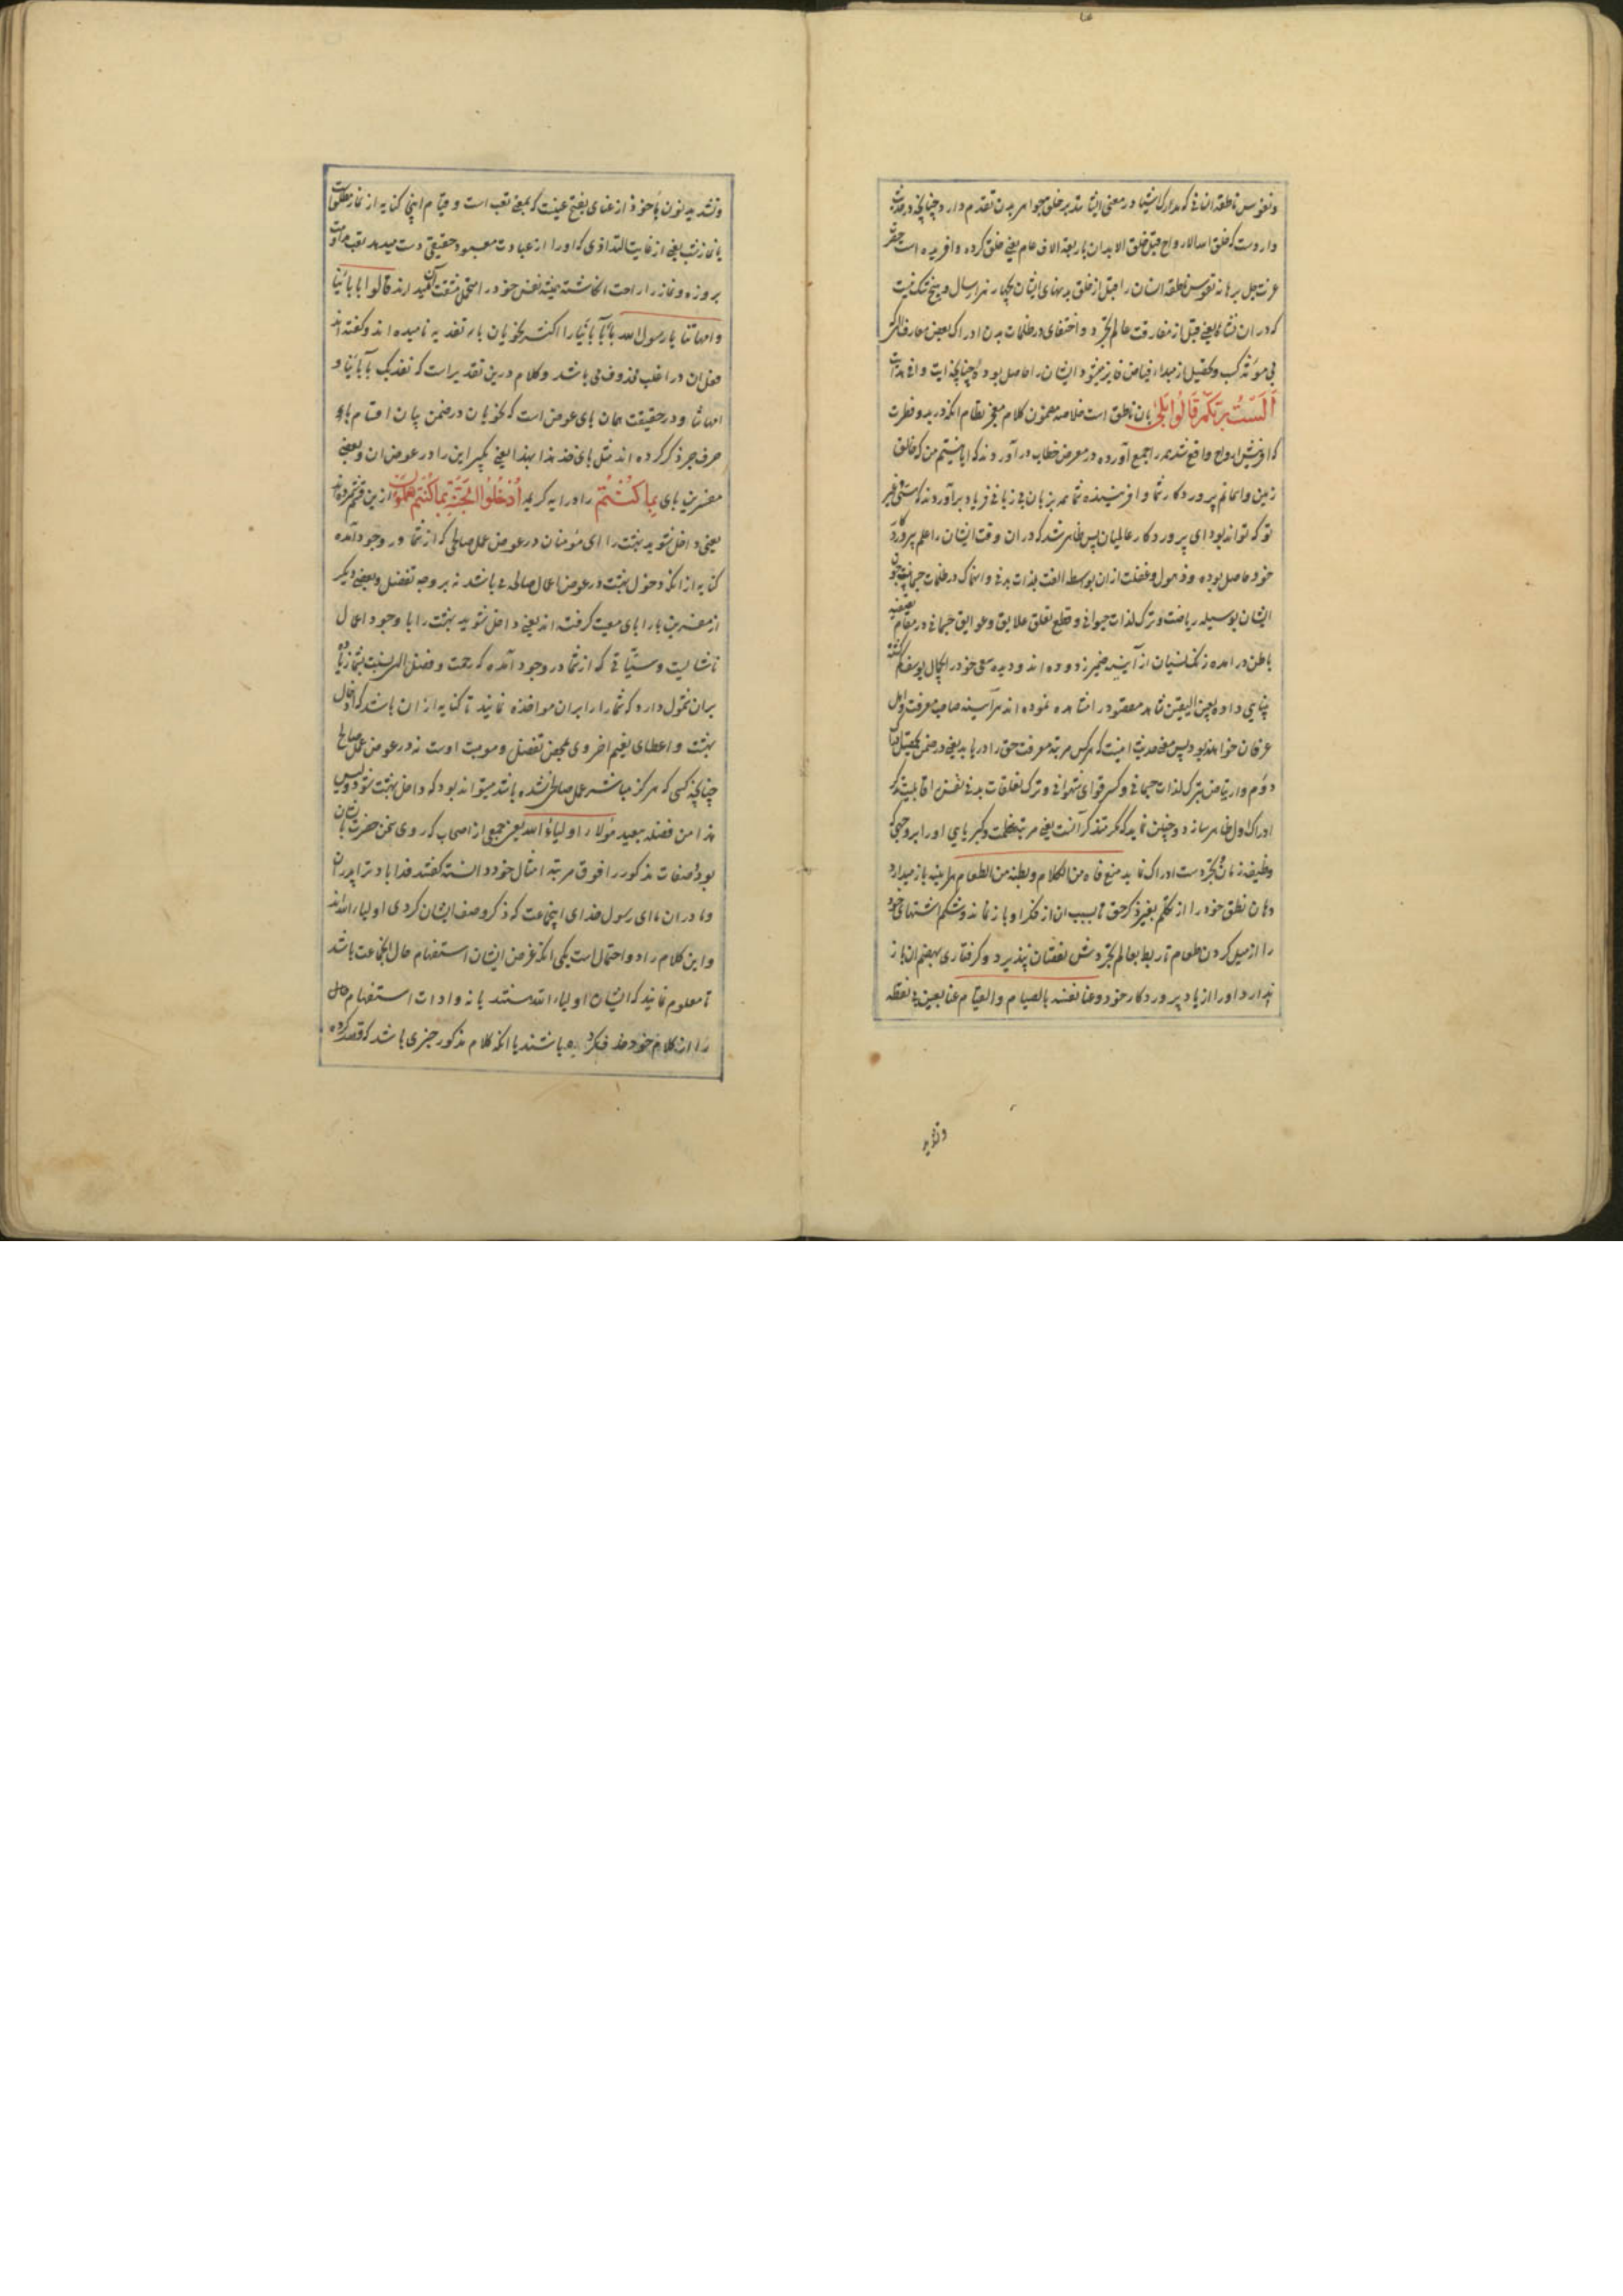 ونفوس ناطقه انسانی که مدارک اشیا و در معنی ایشانند بر خلق جواهر بدن تقدم دارد چنانچه در حدیث
وارد است که خلق الله الارواح قبل خلق الابدان باربعة الاف عام یعنی خلق کرده و افریده است حضرت
عزت جل برهانه نفوس ناطقه انسان را قبل از خلق بدنهای ایشان بچهار هزار سال و هیچ شک نیست
که در ان نشاه یعنی قبل از مفارقت عالم تجرد و اختفای در ظلمات بدن ادراک بعضی معارف
بی مؤنه کسب و تحصیل از مبداء فیاض ایشان را حاصل بوده چنانچه ایت وافی هدایت
اَلَسْتُ بِرَبِّكُمْ قَالُوا بَلَىٰ بان ناطق است خلاصه مضمون کلام معجز نظام انکه در بدو فطرت
که افرینش ارواح واقع شد همه را جمع آورده در معرض خطاب در آوردند که ایا نیستم من که خالق
زمین و اسمانم پروردکار شما و افریننده شما همه بزبان بی زبانی فریاد برآوردند که هستی و غیر
تو که تواند بود ای پروردکار عالمیان پس ظاهر شد که در ان وقت ایشان را علم پروردگار
خود حاصل بوده و ذهول و غفلت از ان بواسطه الفت بلذات بدنی و انهماک در ظلمات جسمانیت چون
ایشان بوسیله ریاضت و ترک لذات حیوانی و قطع تعلق علایق و عوایق جسمانی در مقام تصفیه
باطن در امده زنک نسیان از آینه ضمیر زدوده اند و دیده سعی خود را بکحال یوسف گمگشته
بینایی داده بعین الیقین شاهد مقصود را مشاهده نموده اند هرآینه صاحب معرفت و اهل
عرفان خواهند بود پس معنی حدیث اینست که هر کس مرتبه معرفت حق را دریابد یعنی در ضمن تحصیل
دوم و ارتیاض بترک لذات جسمانی و کسر قوای شهوانی و ترک تعلقات بدنی نفس را قابلیت
ادراک اول ظاهر سازد و چنین نماید که کر متذکر آنست یعنی مرتبه عظمت و کبریایی او را بر وجهی که
وظیفه زمان تجرد است ادراک نماید منع فاه من الکلام و بطنه من الطعام هراینه باز میدارد
دهان نطق خود را از تکلم بغیر ذکر حق تا بسبب ان از فکر او باز نماند و شکم اشتهای خود
را از میل کردن طعام تا ربط بعالم تجردش نقصان نپذیرد و کرفتاری بهضم ان باز
ندارد او را از یاد پروردکار خود و عنا نفسه بالصیام و القیام عنا بعین بی نقطه
وتشدید
وتشدید نون مأخوذ از عنای بفتح عینست که بمعنی تعب است و قیام اینجا کنایه از نماز مطلقاست
یا نماز شب یعنی از غایت التذاذی که او را از عبادت معبود حقیقی دست میدهد تعب مداومت
بروزه و نماز را راحت انکاشته همیشه نفس خود را متحمل مشقت آن میدارند قالوا بابائنا
وامهاتنا یا رسول الله باء بآبائنا را اکثر نحویان باء تفدیه نامیده اند و کفته اند
فعل ان در اغلب محذوف می باشد و کلام درین تقدیر است که نفدیک بآبائنا و
امهاتنا و در حقیقت همان بای عوض است که نحویان در ضمن بیان اقسام باء
حرف جر ذکر کرده اند مثل بای خذ هذا بهذا یعنی بکیر این را در عوض ان و بعضی
مفسرین بای بِمَا كُنْتُمْ را در ایه کریمه اُدْخُلُوا الْجَنَّةَ بِمَا كُنْتُمْ تَعْمَلُونَ ازین قسم شمرده اند
یعنی داخل شوید بهشت را ای مؤمنان در عوض عمل صالحی که از شما در وجود آمده
کنایه از انکه دخول بهشت در عوض اعمال صالحه می باشد نه بر وجه تفضل و بعضی دیکر
از مفسرین باء را بای معیت کرفته اند یعنی داخل شوید بهشت را با وجود اعمال
ناشایست و سیّآتی که از شما در وجود آمده که رحمت و فضل الهی نسبت بشما زیاده
بران شمول دارد که شما را بران مواخذه نمایند تا کنایه از ان باشد که ادخال
بهشت و اعطای نعیم اخروی بمحض تفضل و موهبت اوست نه در عوض عمل صالح
چنانچه کسی که هرکز مباشر عمل صالح نشده باشد میتواند بود که داخل بهشت شود و لیس
هذا من فضله ببعید هؤلاء اولیاء الله یعنی جمعی از اصحاب که روی سخن حضرت بایشان
بود صفات مذکور را فوق مرتبه امثال خود دانسته کفتند فدا باد ترا پدران
و مادران ما ای رسول خدای اینجماعت که ذکر وصف ایشان کردی اولیاء الله اند
و این کلام را دو احتمال است یکی انکه غرض ایشان استفهام حال انجماعت باشد
تا معلوم نمایند که ایشان اولیاء الله هستند یا نه و ادات استفهام
را از کلام خود حذف کرده باشند یا انکه کلام مذکور خبری باشد که قصد کرده